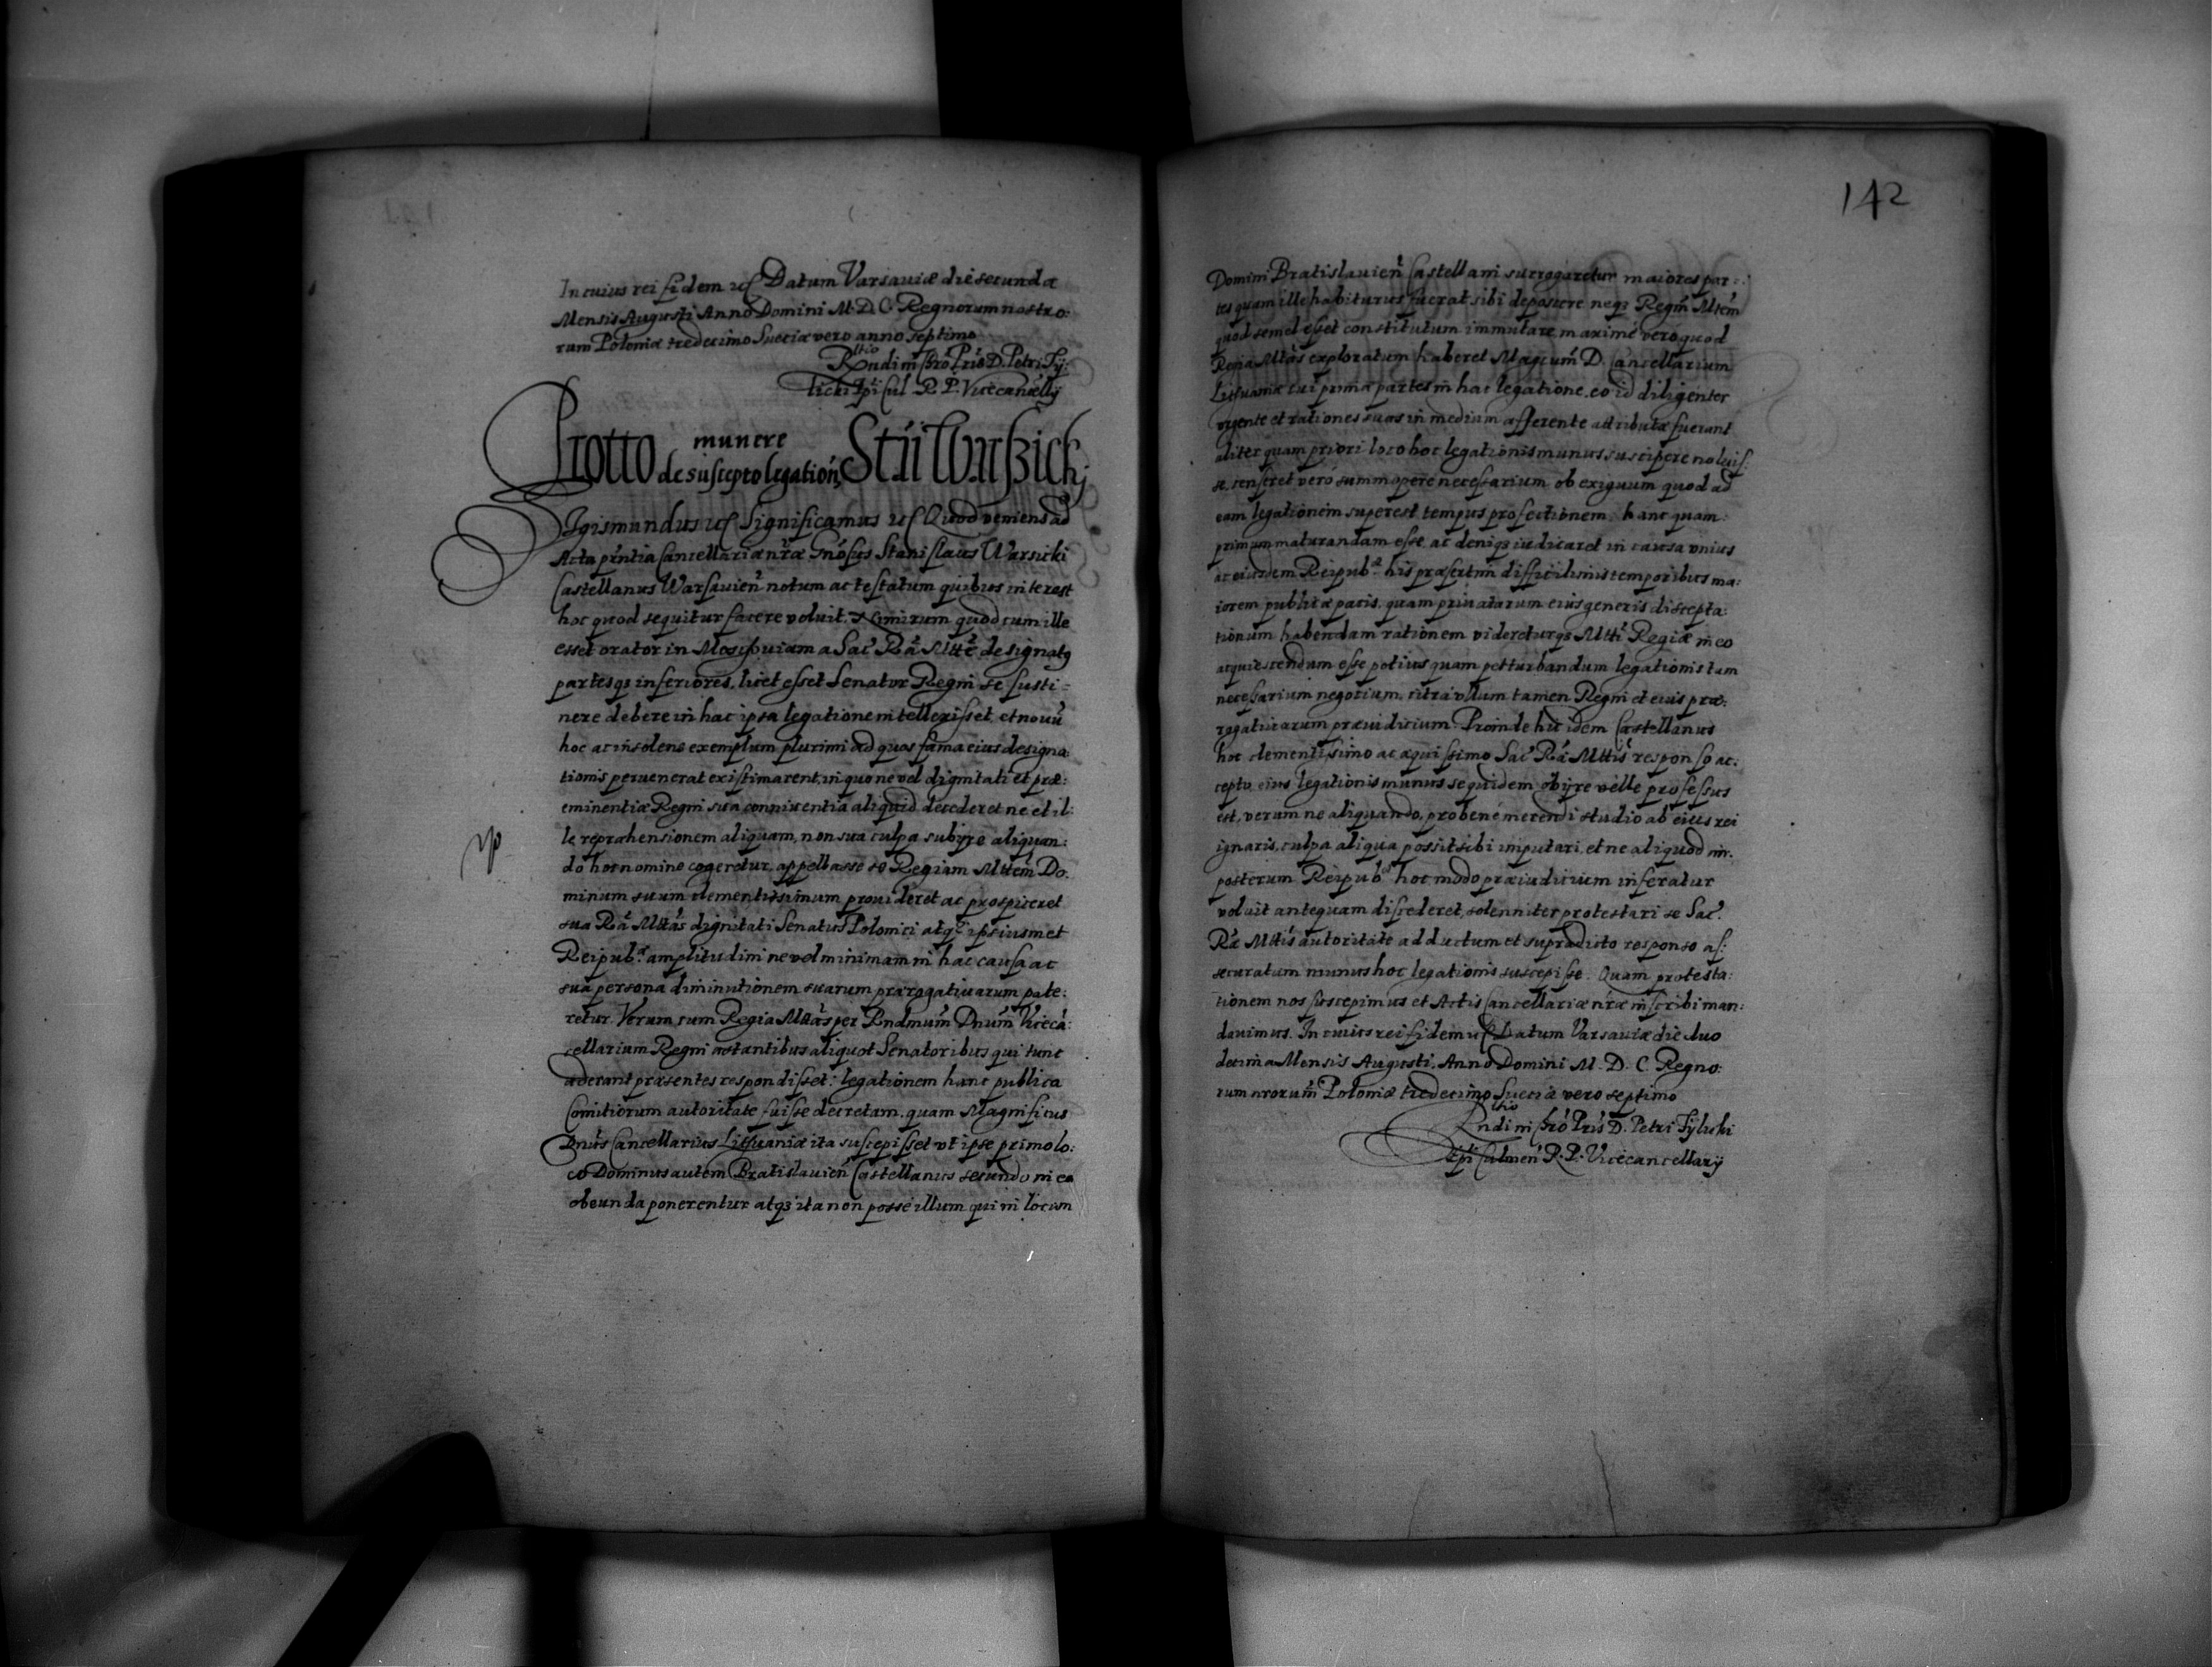 In cuius rei fidem etc Datum Varsaviæ die secunda
Mensis Augusti Anno Domini M. D. C. Regnorum nostro:
rum Poloniæ tredecimo Sueciæ vero anno septimo
Rltio
Rndi in Chro Pris D. Petri Ty:
licki Epi Cul R. P. Vicecancellÿ
Protto munere
de suscepto legation, Stñi Warßicki
Sigismundus etc Significamus etc Quod veniens ad
Acta pñtia Cancellariæ nræ Gnosus Stanislaus Warsicki
Castellanus Warsavien̄ notum ac testatum quibus interest
hoc quod sequitur facere voluit. Nimirum quod cum ille
esset orator in Moschouiam a Sac Ra Mtte designatq
partesq3 inferiores, licet esset Senator Regni se susti=
nere debere in hac ipsa legatione intellexisset, et nouũ
hoc ac insolens exemplum plurimi ad quos fama eius designa:
tionis peruenerat existimarent, in quo ne vel dignitati et præ:
eminentiæ Regni sua conniventia aliquid decederet ne et il:
le repræhensionem aliquam, non sua culpa subÿre aliquan:
do hoc nomine cogeretur, appellasse se Regiam Mttem Do.
minum suum clementissimum provideret ac prospiceret
sua Ra Mttas dignitati Senatus Polonici atq3 ipsiusmet
Reipub. amplitudini ne vel minimam in hac causa ac
sua persona diminutionem suarum prærogativarum pate:
retur. Verum cum Regia Mttas per Rndmum Dnum Vicecã:
cellarium Regni astantibus aliquot Senatoribus qui tunc
aderant præsentes respondisset: legationem hanc publica
Comitiorum autoritate fuisse decretam, quam Magnificus
Dnus Cancellarius Lithuaniæ ita suscepisset vt ipse primo lo:
co Dominus autem Bratislauien̄ Castellanus secundo in ea
obeunda ponerentur atq3 ita non posse illum qui in locum
142
Domini Bratislauien̄ Castellani surrogaretur maiores par:
tes quam ille habiturus fuerat sibi deposcere neq3 Regm̃ Mttem
quod semel esset constitutum immutare maximè verò quod
Regia Mttas exploratum haberet Magcum D. Cancellarium
Lithuaniæ cui primæ partes in hac legatione, eo id diligenter
vrgente et rationes suas in medium afferente attributæ fuerant
aliter quam priori loco hoc legationis munus suscipere noluis:
se, censeret verò summopere necessarium ob exiguum quod ad
eam legationem superest tempus profectionem hanc quam
primum maturandam esse, ac deniq3 iudicaret in causa vnius
ac eiusdem Reipub. his præsertim difficilimis temporibus ma:
iorem publicæ pacis, quam privatarum eius generis discepta:
tionum habendam rationem videreturq3 Mtti Regiæ in eo
acquiescendum esse potius quam petturbandum legationis tam
necessarium negotium, citra vllum tamen Regni et eius præ:
rogativarum præiudicium. Proinde hic idem Castellanus
hoc clementissimo ac æquissimo Sac Ra Mttis responso ac:
cepto eius legationis munus se quidem obÿre velle professus
est, verum ne aliquando, pro bene merendi studio ab eius rei
ignaris, culpa aliqua possit sibi imputari, et ne aliquod in
posterum Reipub hoc modo præiudicium inferatur
voluit antequam discederet, solenniter protestari se Sac.
Ræ Mttis autoritate adductum et supradicto responso as:
securatum munus hoc legationis suscepisse. Quam protesta:
tionem nos suscepimus et Actis Cancellariæ nræ inscribi man:
davimus. In cuius rei fidem etc Datum Varsaviæ die duo
decima Mensis Augusti. Anno Domini M. D. C. Regno:
rum nrorum Poloniæ tredecimo Sueciæ vero septimo
Rltio
Rndi in Chro Pris D. Petri Tylicki
Epi Culmen R. P. Vicecancellarÿ